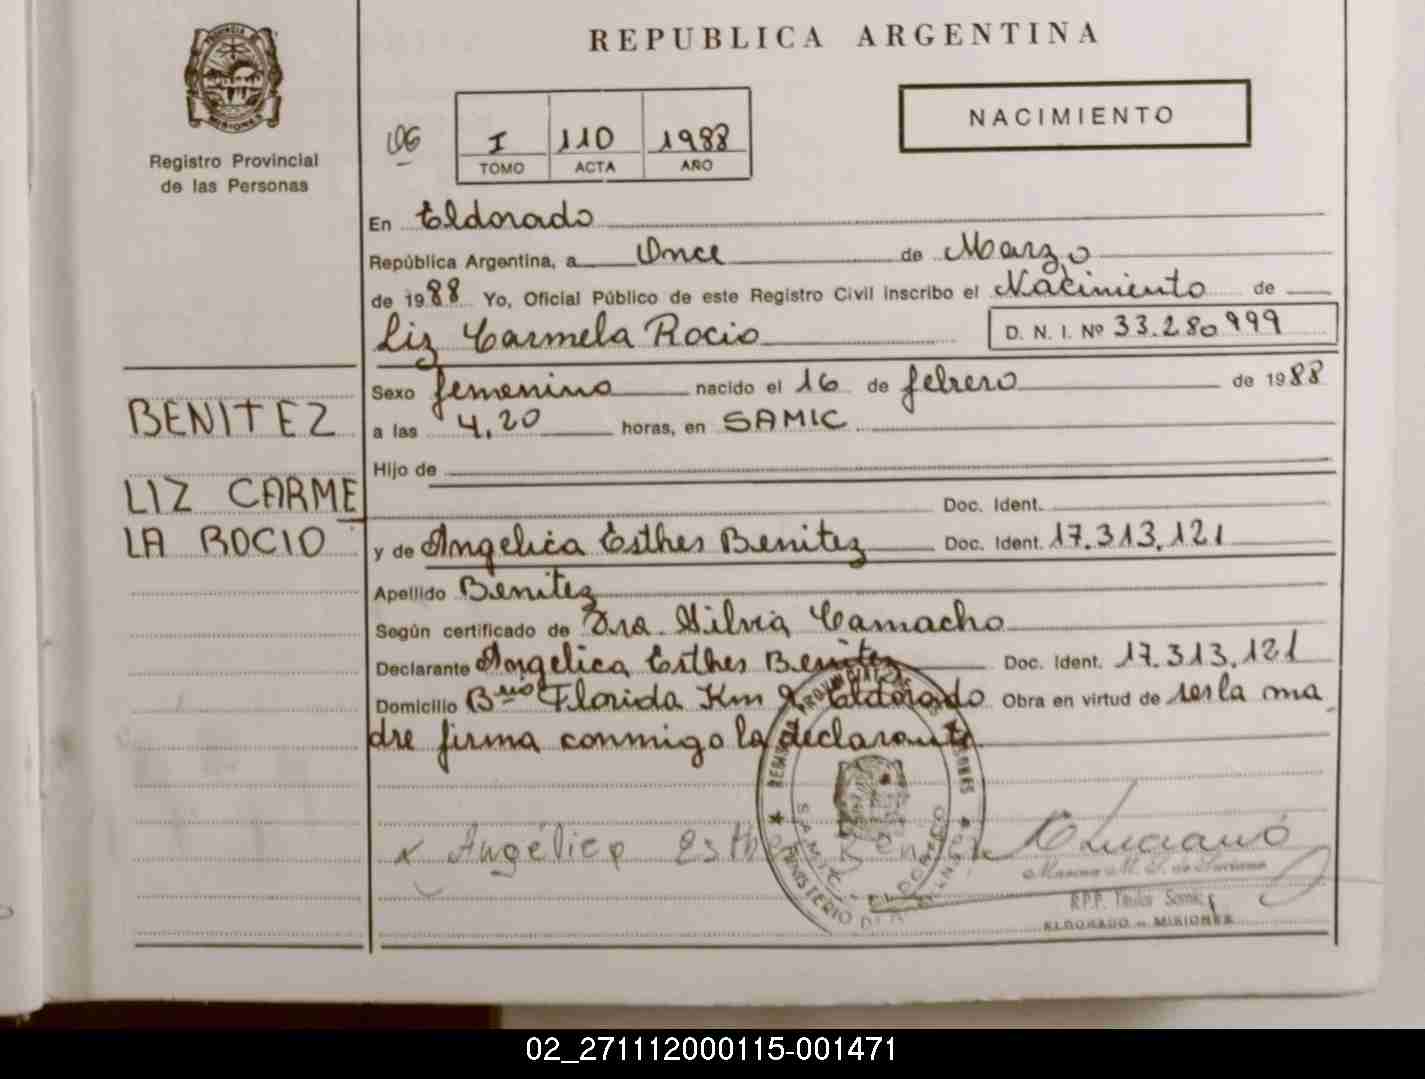 REPUBLICA ARGENTINA
MISIONES
Registro Provincial
de las Personas
106
I 110 1988
TOMO ACTA AÑO
NACIMIENTO
En Eldorado
República Argentina, a Once de Marzo
de 1988 Yo, Oficial Público de este Registro Civil inscribo el Nacimiento de
Liz Carmela Rocio D. N. I. Nº 33.280.999
Sexo femenino nacido el 16 de febrero de 1988
BENITEZ
a las 4,20 horas, en SAMIC
Hijo de
LIZ CARME
Doc. Ident.
LA ROCIO
y de Angelica Esther Benitez Doc. Ident. 17.313.121
Apellido Benitez
Según certificado de Dra. Silvia Camacho
Declarante Angelica Esther Benitez Doc. Ident. 17.313.121
Domicilio Bº Florida Km 9 Eldorado Obra en virtud de ser la ma
dre firma conmigo la declarante
x Angélica Esther Benitez
Luciano
R.P.P. Titular Samic
ELDORADO - MISIONES
02_271112000115-001471